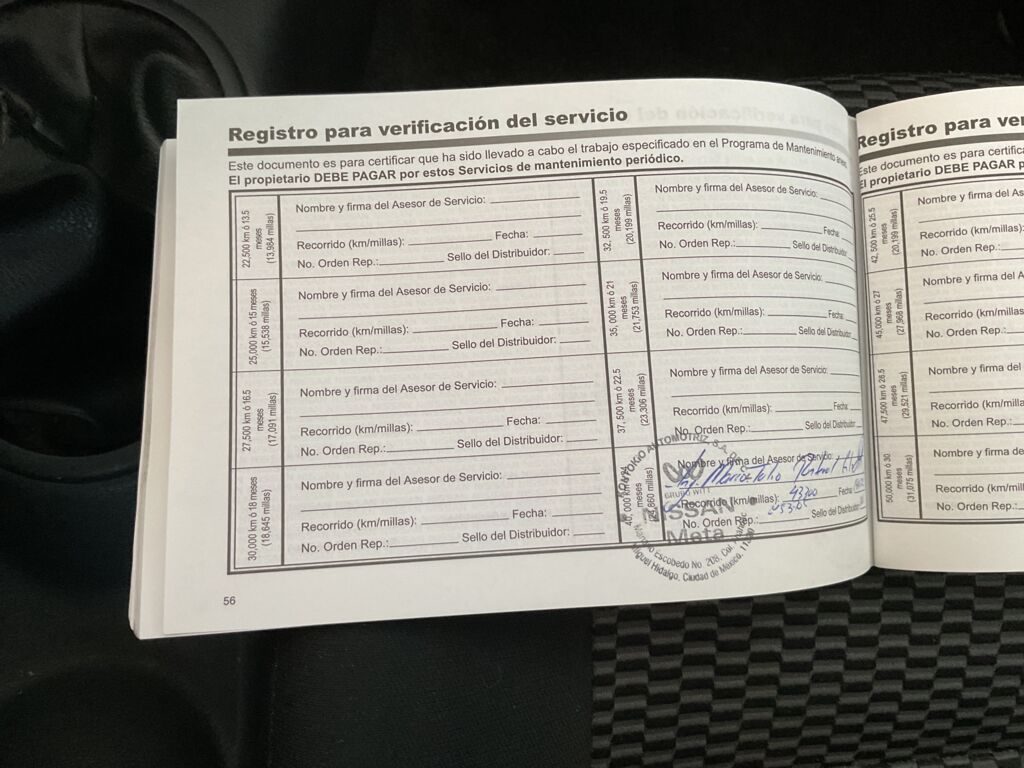 Registro para verificación del servicio
Este documento es para certificar que ha sido llevado a cabo el trabajo especificado en el Programa de Mantenimiento
El propietario DEBE PAGAR por estos Servicios de mantenimiento periódico.
22,500 km ó 13.5
meses
(13,984 millas)
Nombre y firma del Asesor de Servicio:
Recorrido (km/millas): Fecha:
No. Orden Rep.: Sello del Distribuidor:
25,000 km ó 15 meses
(15,538 millas)
Nombre y firma del Asesor de Servicio:
Recorrido (km/millas): Fecha:
No. Orden Rep.: Sello del Distribuidor:
27,500 km ó 16.5
meses
(17,091 millas)
Nombre y firma del Asesor de Servicio:
Recorrido (km/millas): Fecha:
No. Orden Rep.: Sello del Distribuidor:
30,000 km ó 18 meses
(18,645 millas)
Nombre y firma del Asesor de Servicio:
Recorrido (km/millas): Fecha:
No. Orden Rep.: Sello del Distribuidor:
32, 500 km ó 19.5
meses
(20,199 millas)
Nombre y firma del Asesor de Servicio:
Recorrido (km/millas): Fecha:
No. Orden Rep.: Sello del Distribuidor:
35, 000 km ó 21
meses
(21,753 millas)
Nombre y firma del Asesor de Servicio:
Recorrido (km/millas): Fecha:
No. Orden Rep.: Sello del Distribuidor:
37,500 km ó 22.5
meses
(23,306 millas)
Nombre y firma del Asesor de Servicio:
Recorrido (km/millas): Fecha:
No. Orden Rep.: Sello del Distribuidor:
meses
Nombre y firma del Asesor de Servicio:
Recorrido (km/millas): 43200 Fecha
No. Orden Rep.: Sello del Distribuidor:
AUTOMOTRIZ, S.A.
NISSAN
Meta
Escobedo No. 208, Col.
Miguel Hidalgo, Ciudad de México,
56
Registro para ver
Este documento es para certifica
El propietario DEBE PAGAR po
42, 500 km ó 25.5
meses
(20,199 millas)
Nombre y firma del As
Recorrido (km/millas
No. Orden Rep.:
45,000 km ó 27
meses
(27,968 millas)
Nombre y firma del A
Recorrido (km/millas
No. Orden Rep.:
47,500 km ó 28.5
meses
(29,521 millas)
Nombre y firma del
Recorrido (km/milla
No. Orden Rep.:
50,000 km ó 30
meses
(31,075 millas)
Nombre y firma de
Recorrido (km/mill
No. Orden Rep.: